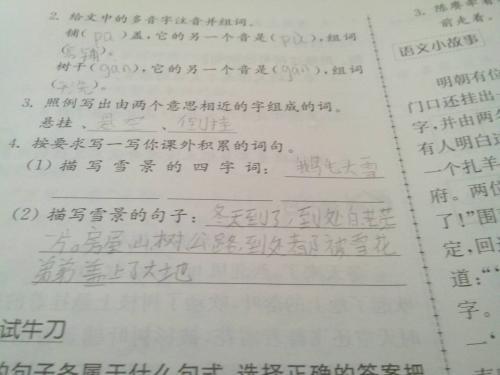 2. 给文中的多音字注音并组词。
铺(pū)盖,它的另一个音是(pù),组词
(店铺)。
树干(gàn),它的另一个音是(gān),组词
(干洗)。
3. 照例写出由两个意思相近的字组成的词。
悬挂、悬空、倒挂
4. 按要求写一写你课外积累的词句。
(1) 描写雪景的四字词: 鹅毛大雪
(2) 描写雪景的句子: 冬天到了,到处白茫茫
一片。房屋、山、树、公路,到处都被雪花
盖上了大地
试牛刀
的句子各属于什么句式,选择正确的答案把
3. 陈
前走看。
语文小故事
明朝有位
门口还挂出一
字,并由两名
有人明白过
一个扎羊
府。两位
了!”围
定,回
道:“
字。
一“